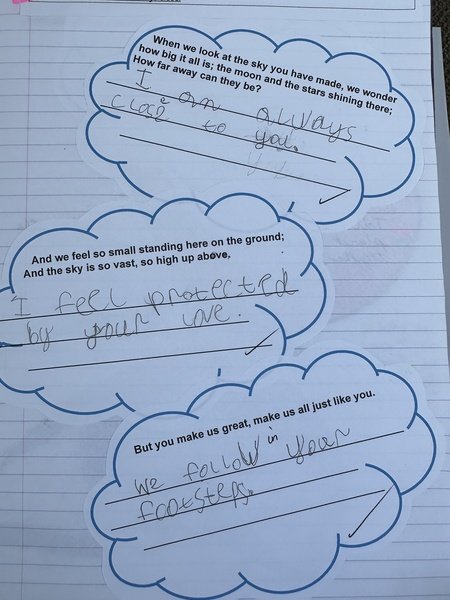 When we look at the sky you have made, we wonder
how big it all is; the moon and the stars shining there;
How far away can they be?
I am always
close to you.
And we feel so small standing here on the ground;
And the sky is so vast, so high up above,
I feel protected
by your love.
But you make us great, make us all just like you.
We follow in your
footsteps.